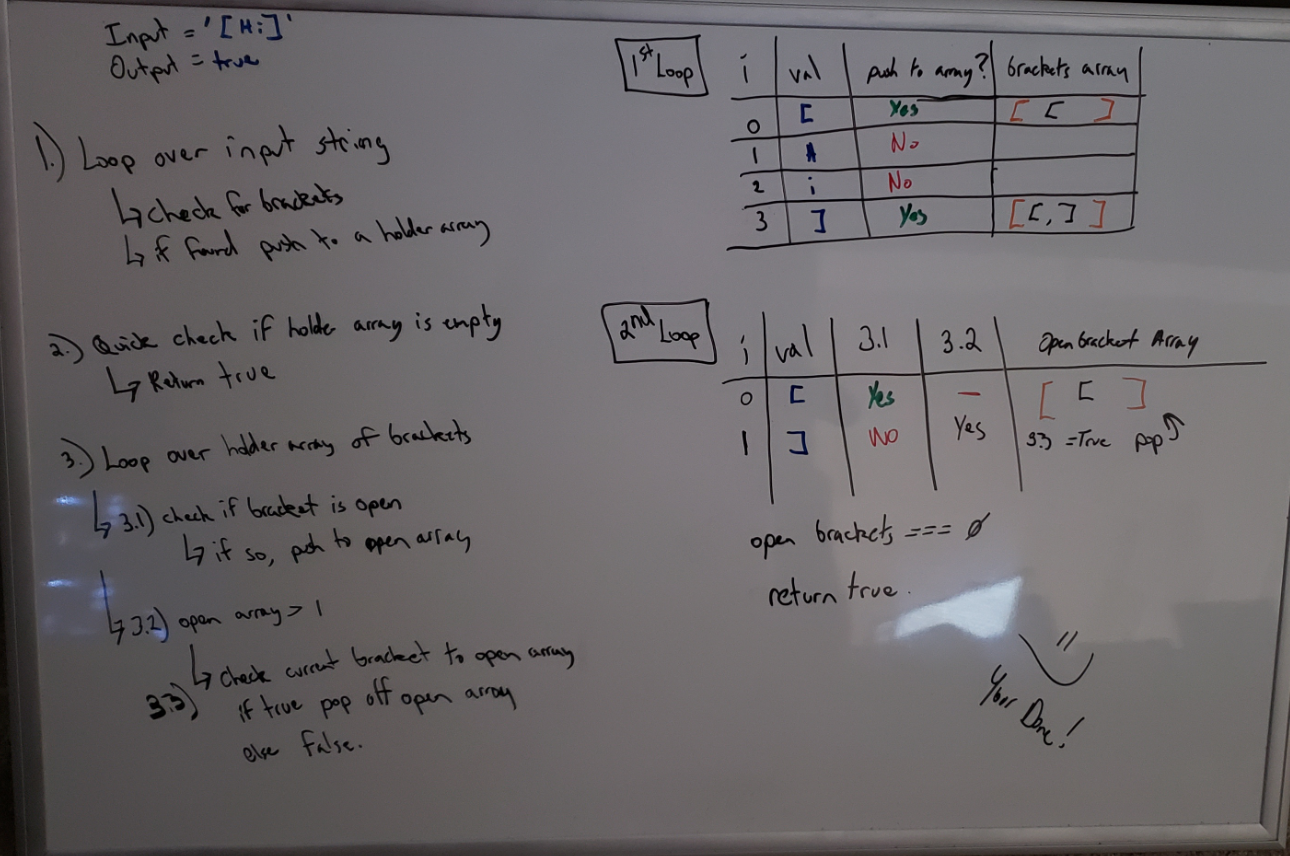 Input = '[Hi]'
Output = true
1.) Loop over input string
↳ check for brackets
↳ if found push to a holder array
2.) Quick check if holder array is empty
↳ Return true
3.) Loop over holder array of brackets
↳ 3.1) check if bracket is open
↳ if so, push to open array
↳ 3.2) open array > 1
↳ check current bracket to open array
3.3) if true pop off open array
else false.
1st Loop
i val push to array? brackets array
0 [ Yes [ [ ]
1 H No
2 i No
3 ] Yes [ [, ] ]
2nd Loop
i val 3.1 3.2 Open bracket Array
0 [ Yes — [ [ ]
1 ] No Yes 3.3 = True pop ↑
open brackets === 0
return true.
Your Done!